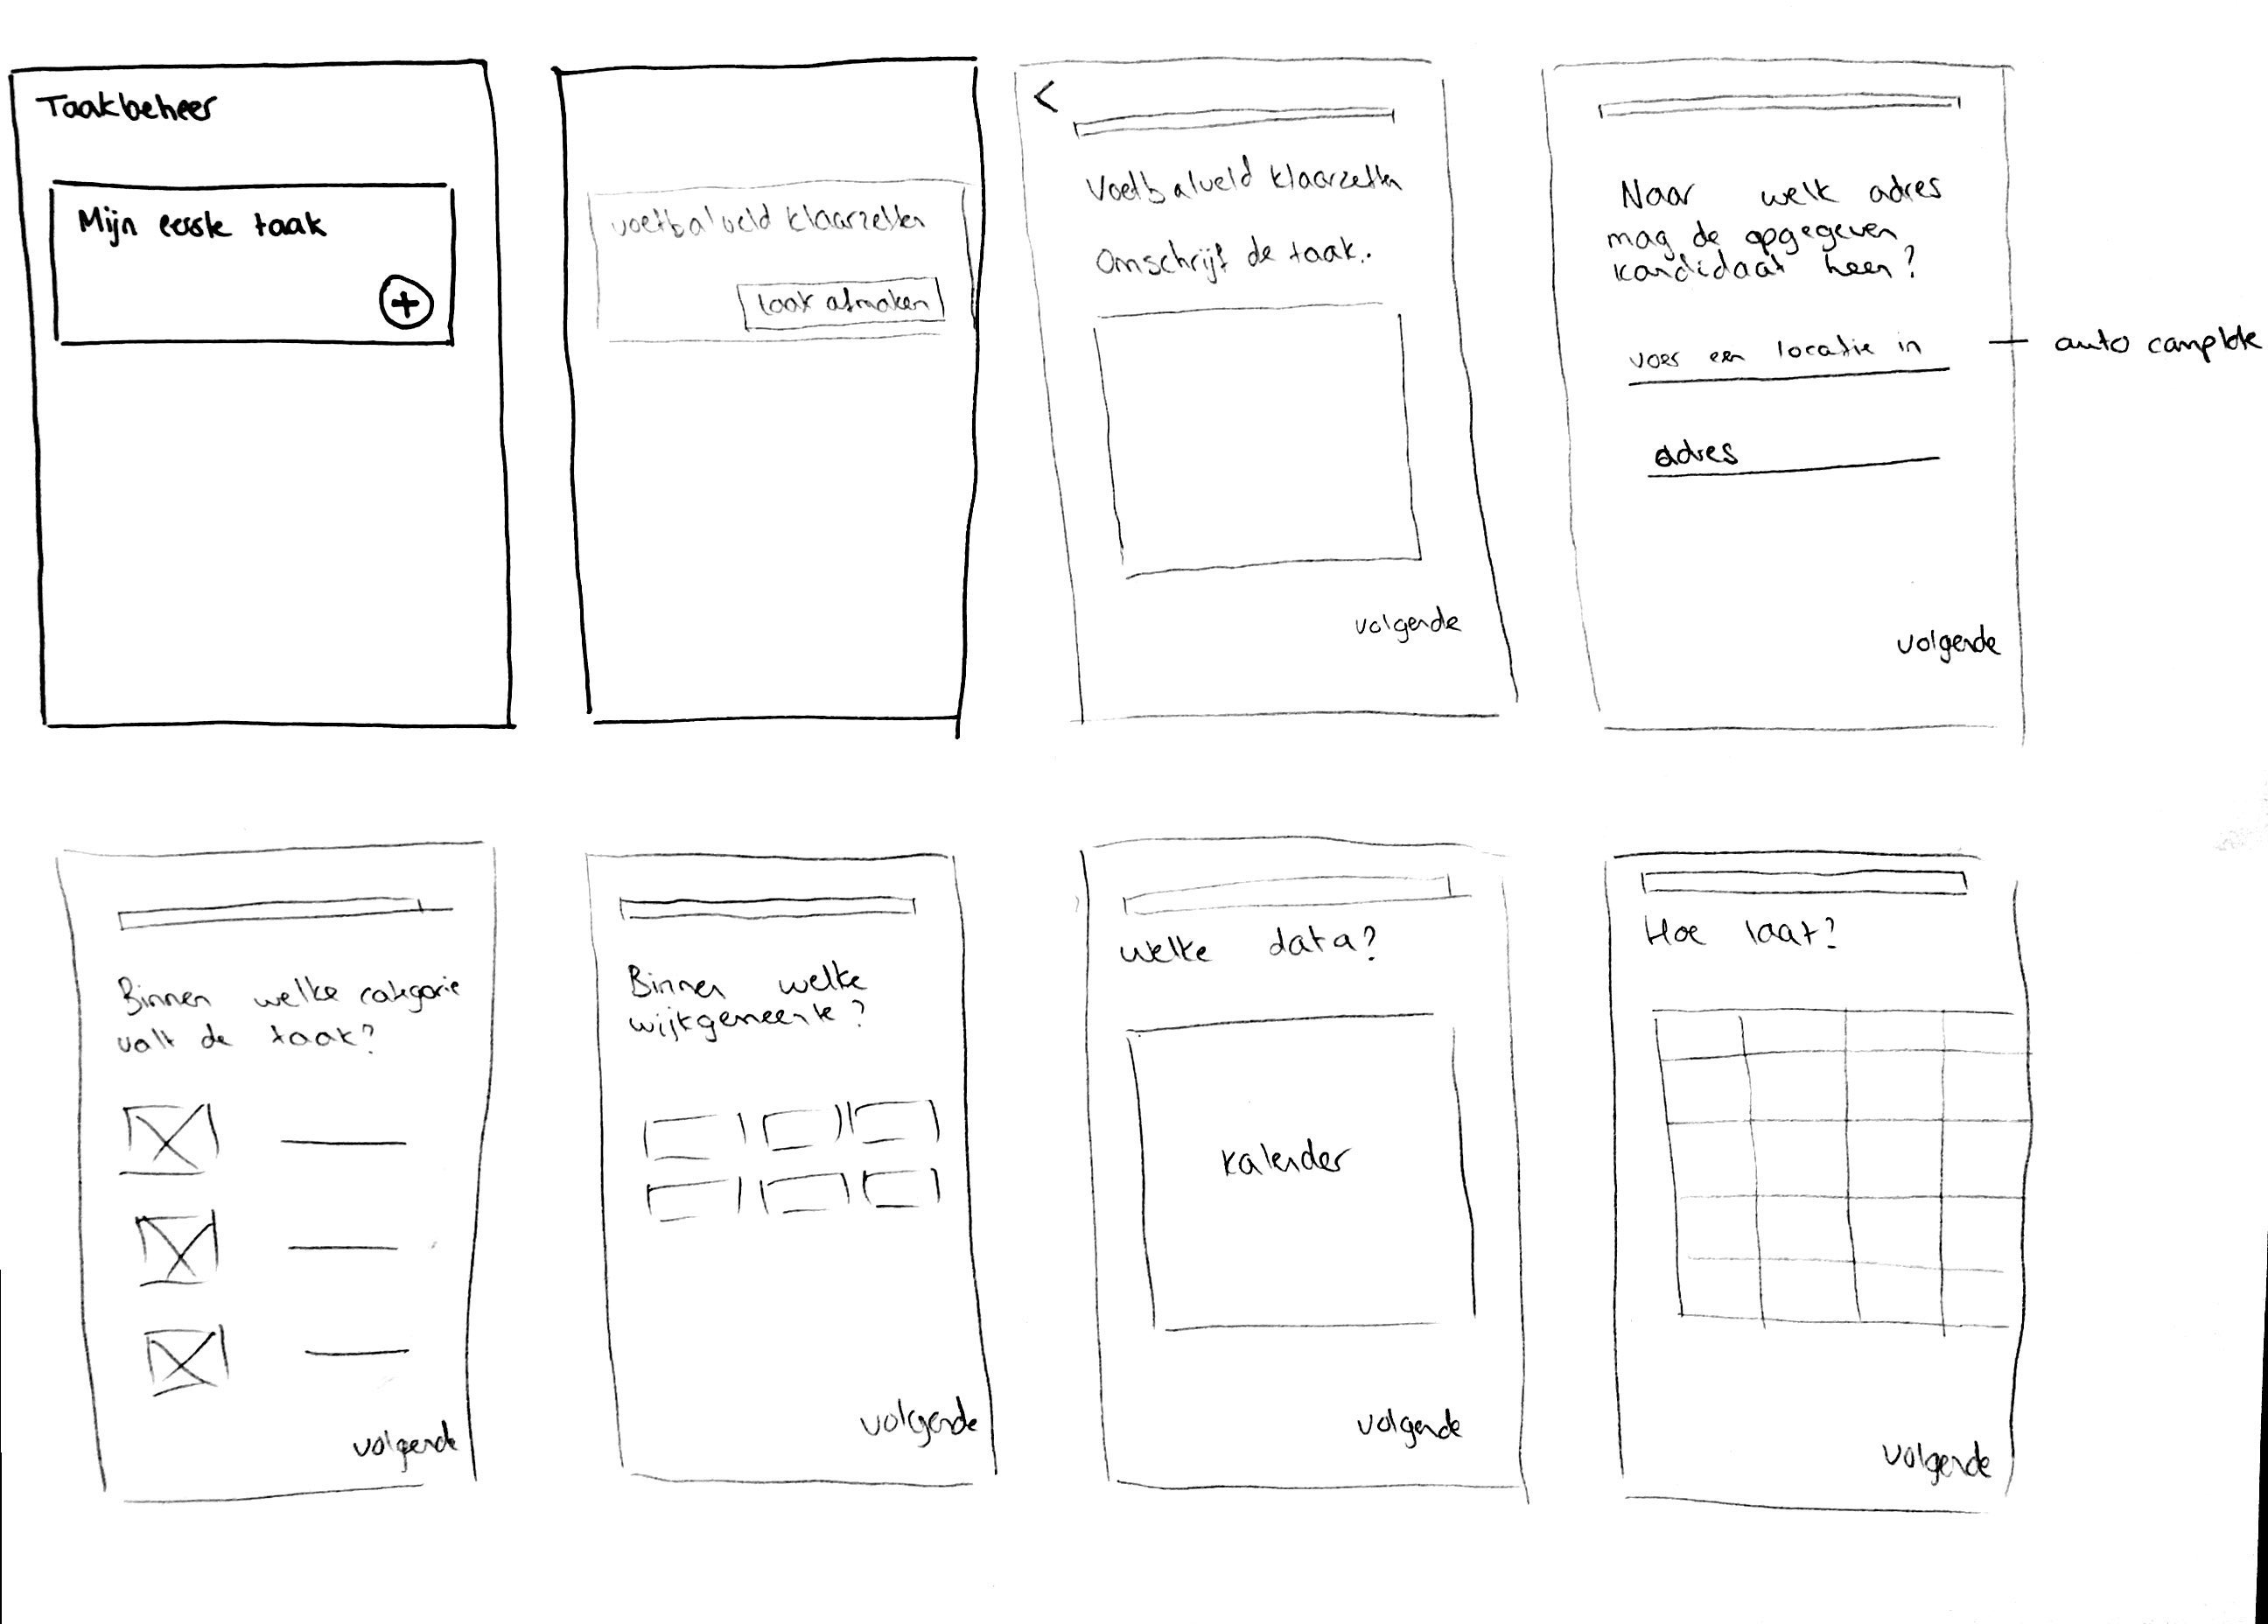 Taakbeheer
Mijn eerste taak
+
voetbalveld klaarzetten
taak afmaken
<
Voetbalveld klaarzetten
Omschrijf de taak.
volgende
Naar welk adres
mag de opgegeven
kandidaat heen?
voer een locatie in
auto complete
adres
volgende
Binnen welke categorie
valt de taak?
volgende
Binnen welke
wijkgemeente?
volgende
welke data?
kalender
volgende
Hoe laat?
volgende